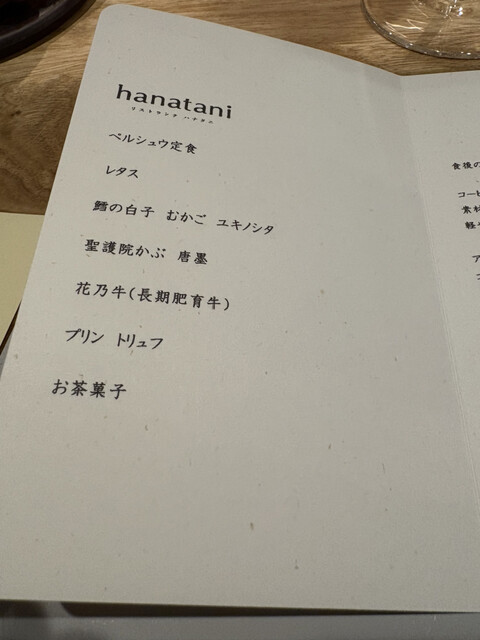 hanatani
リストランテ ハナタニ
ペルシュウ定食
レタス
鱈の白子 むかご ユキノシタ
聖護院かぶ 唐墨
花乃牛(長期肥育牛)
プリン トリュフ
お茶菓子
食後の
コーヒ
素材
軽や